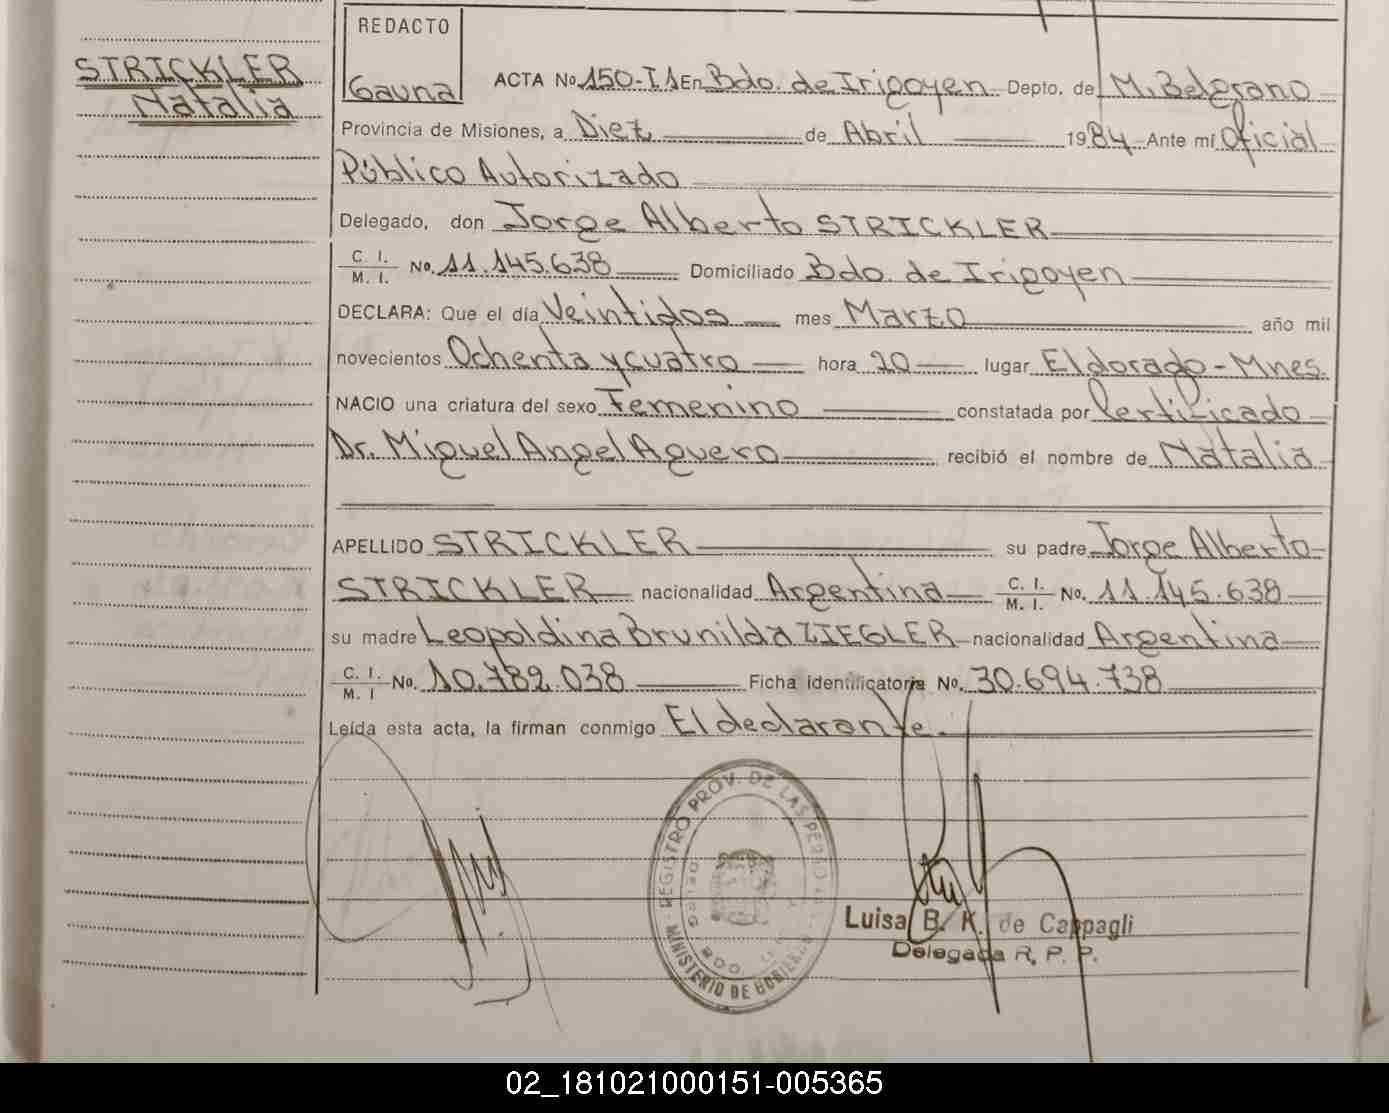 REDACTO
Gauna
STRICKLER
Natalia
ACTA No. 150-T1 En Bdo. de Irigoyen Depto. de M. Belgrano
Provincia de Misiones, a Diez de Abril 1984 Ante mí Oficial
Público Autorizado
Delegado, don Jorge Alberto STRICKLER
C. I. / M. I. No. 11.145.638 Domiciliado Bdo. de Irigoyen
DECLARA: Que el día Veintidos mes Marzo año mil
novecientos Ochenta y cuatro hora 20 lugar Eldorado - Mnes.
NACIO una criatura del sexo Femenino constatada por Certificado
Dr. Miguel Angel Aguero recibió el nombre de Natalia
APELLIDO STRICKLER su padre Jorge Alberto
STRICKLER nacionalidad Argentina C. I. / M. I. No. 11.145.638
su madre Leopoldina Brunilda ZIEGLER nacionalidad Argentina
C. I. / M. I No. 10.782.038 Ficha identificatoria No. 30.694.738
Leída esta acta, la firman conmigo El declarante.
REGISTRO PROV. DE LAS PERSONAS
MINISTERIO DE GOBIERNO
DELEG. BDO
Luisa B. K. de Cappagli
Delegada R. P. P.
02_181021000151-005365